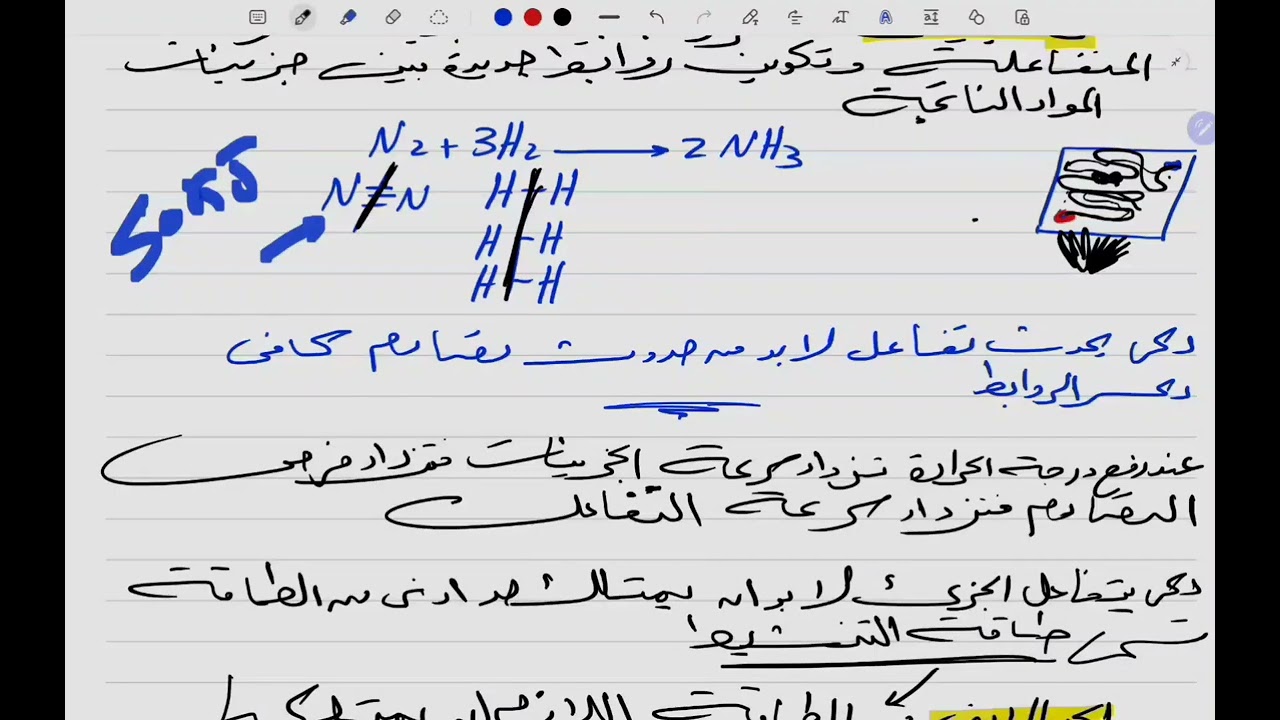 المتفاعلة وتكوين روابط جديدة بين جزيئات
المواد الناتجة
N2 + 3H2 → 2 NH3
N≡N H-H
H-H
H-H
50 KJ
لكى يحدث تفاعل لابد من حدوث تصادم كافى
لكسر الروابط
عند رفع درجة الحرارة تزداد سرعة الجزيئات فتزداد فرص
التصادم فتزداد سرعة التفاعل
لكى يتفاعل الجزئ لابد ان يمتلك حد ادنى من الطاقة
تسمى طاقة التنشيط
الطاقة اللازم